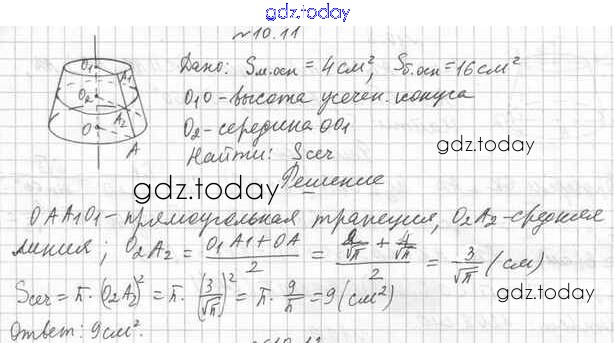 gdz.today
№10.11
Дано: Sм.осн = 4 см², Sб.осн = 16 см²
O₁O - высота усечен. конуса
O₂ - середина OO₁
Найти: Sсеч
gdz.today
gdz.today
Решение
OAA₁O₁ - прямоугольная трапеция, O₂A₂ - средняя
линия; O₂A₂ = (O₁A₁ + OA)/2 = (2/√π + 4/√π)/2 = 3/√π (см)
Sсеч = π · (O₂A₂)² = π · (3/√π)² = π · 9/π = 9 (см²)
gdz.today
Ответ: 9 см².
O₁
A₁
O₂
A₂
O
A